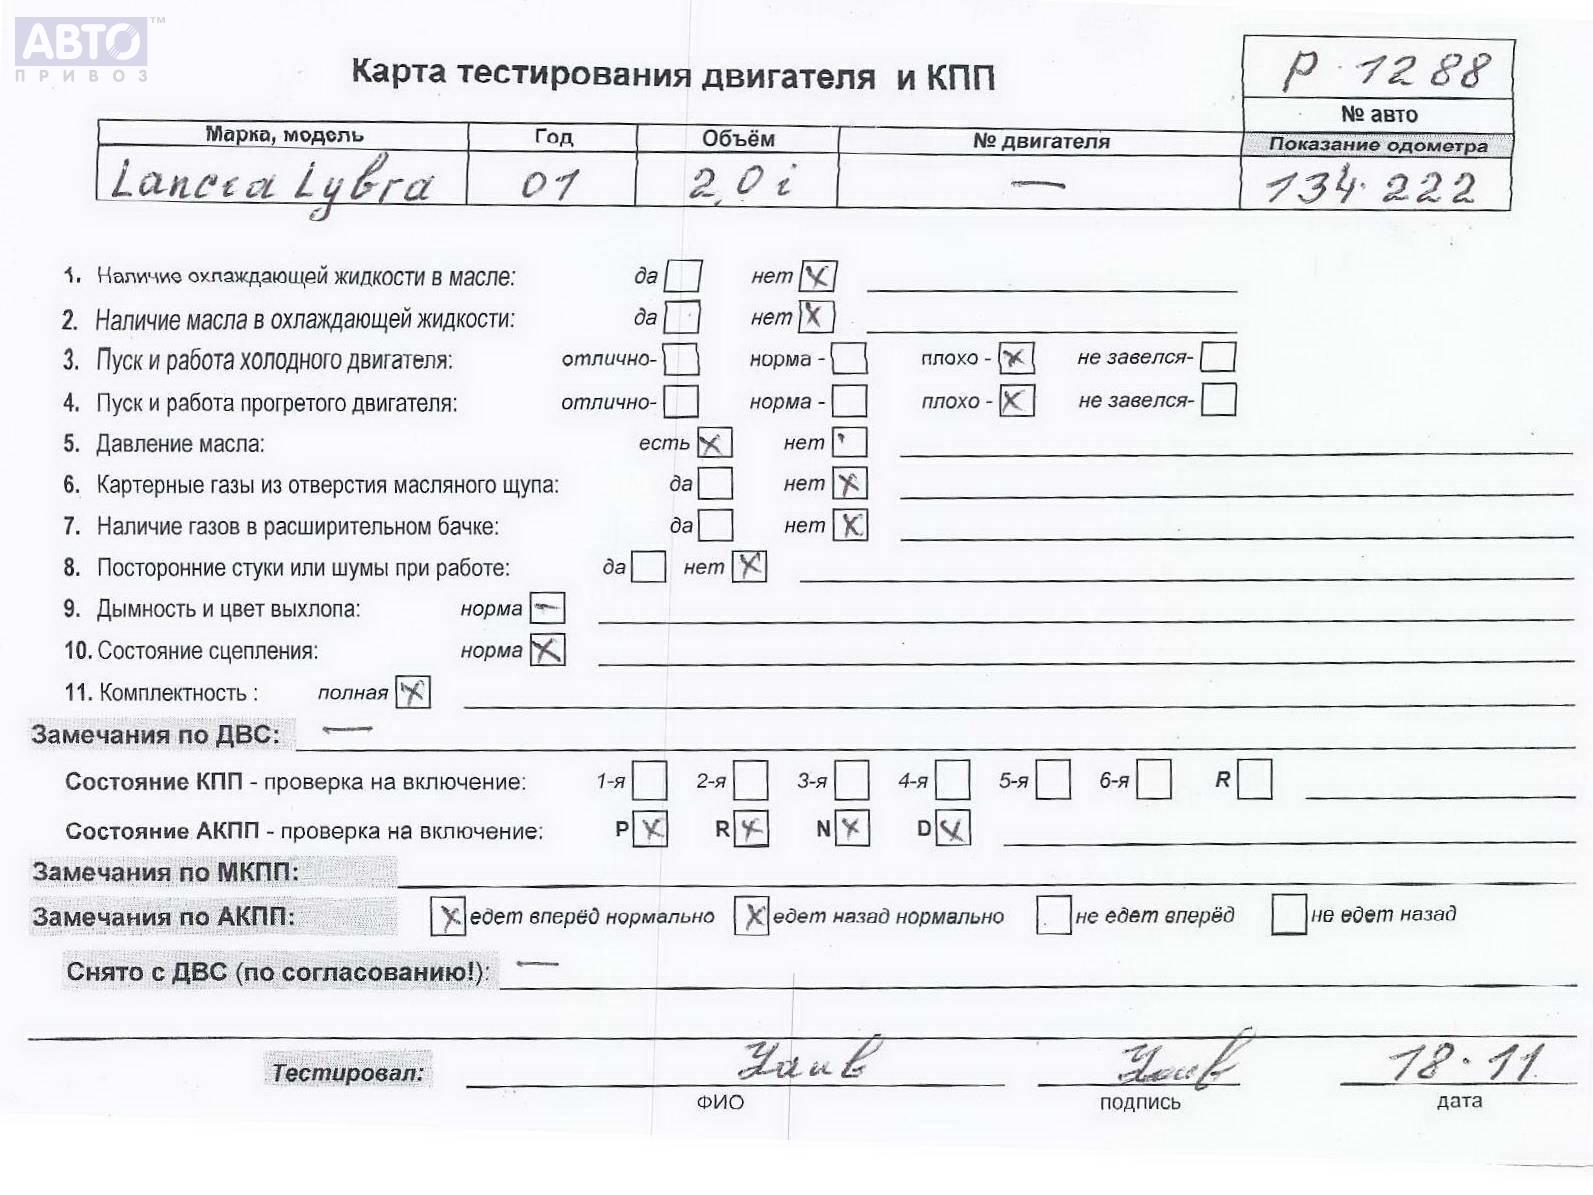 АВТО™
ПРИВОЗ
Карта тестирования двигателя и КПП
Р·1288
№ авто
Марка, модель Год Объём № двигателя Показание одометра
Lancia Lybra 01 2,0i — 134·222
1. Наличие охлаждающей жидкости в масле: да нет X
2. Наличие масла в охлаждающей жидкости: да нет X
3. Пуск и работа холодного двигателя: отлично- норма - плохо - X не завелся-
4. Пуск и работа прогретого двигателя: отлично- норма - плохо - X не завелся-
5. Давление масла: есть X нет
6. Картерные газы из отверстия масляного щупа: да нет X
7. Наличие газов в расширительном бачке: да нет X
8. Посторонние стуки или шумы при работе: да нет X
9. Дымность и цвет выхлопа: норма —
10. Состояние сцепления: норма X
11. Комплектность : полная X
Замечания по ДВС: —
Состояние КПП - проверка на включение: 1-я 2-я 3-я 4-я 5-я 6-я R
Состояние АКПП - проверка на включение: P X R X N X D X
Замечания по МКПП:
Замечания по АКПП: X едет вперёд нормально X едет назад нормально не едет вперёд не едет назад
Снято с ДВС (по согласованию!): —
Тестировал: 18·11
ФИО подпись дата